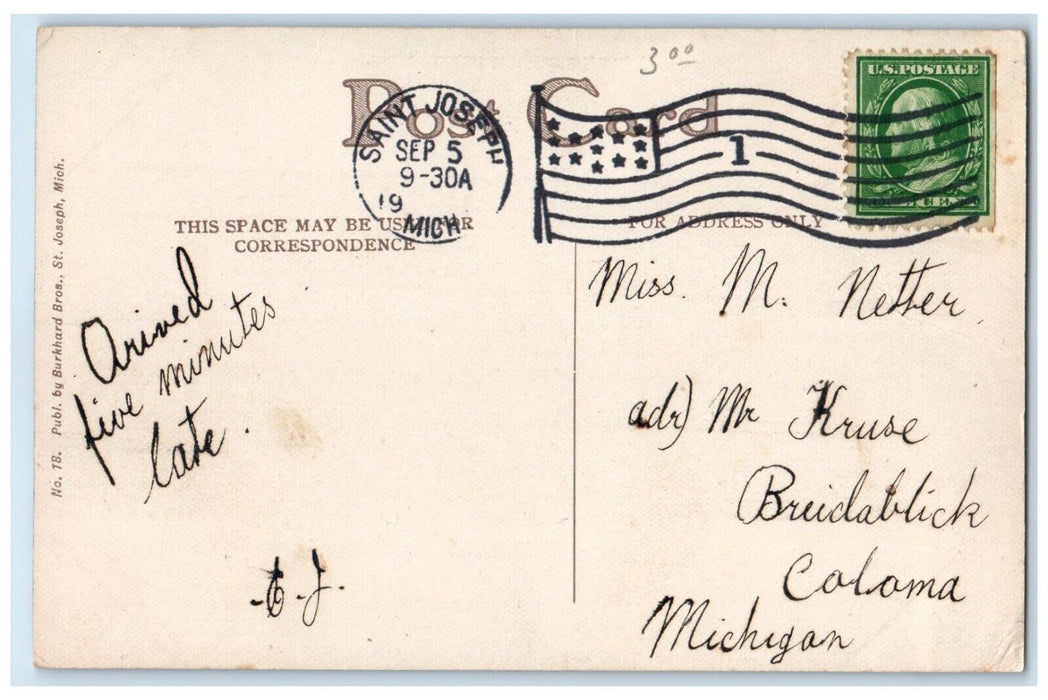 3 00
Post Card
SAINT JOSEPH
SEP 5
9-30A
19
MICH
1
U.S. POSTAGE
THIS SPACE MAY BE USED FOR
CORRESPONDENCE
FOR ADDRESS ONLY
Arived
five minutes
late.
-E.J.-
Miss. M. Netter,
adr) Mr Kruse
Breidablick
Coloma
Michigan
No. 78. Publ. by Burkhard Bros., St. Joseph, Mich.